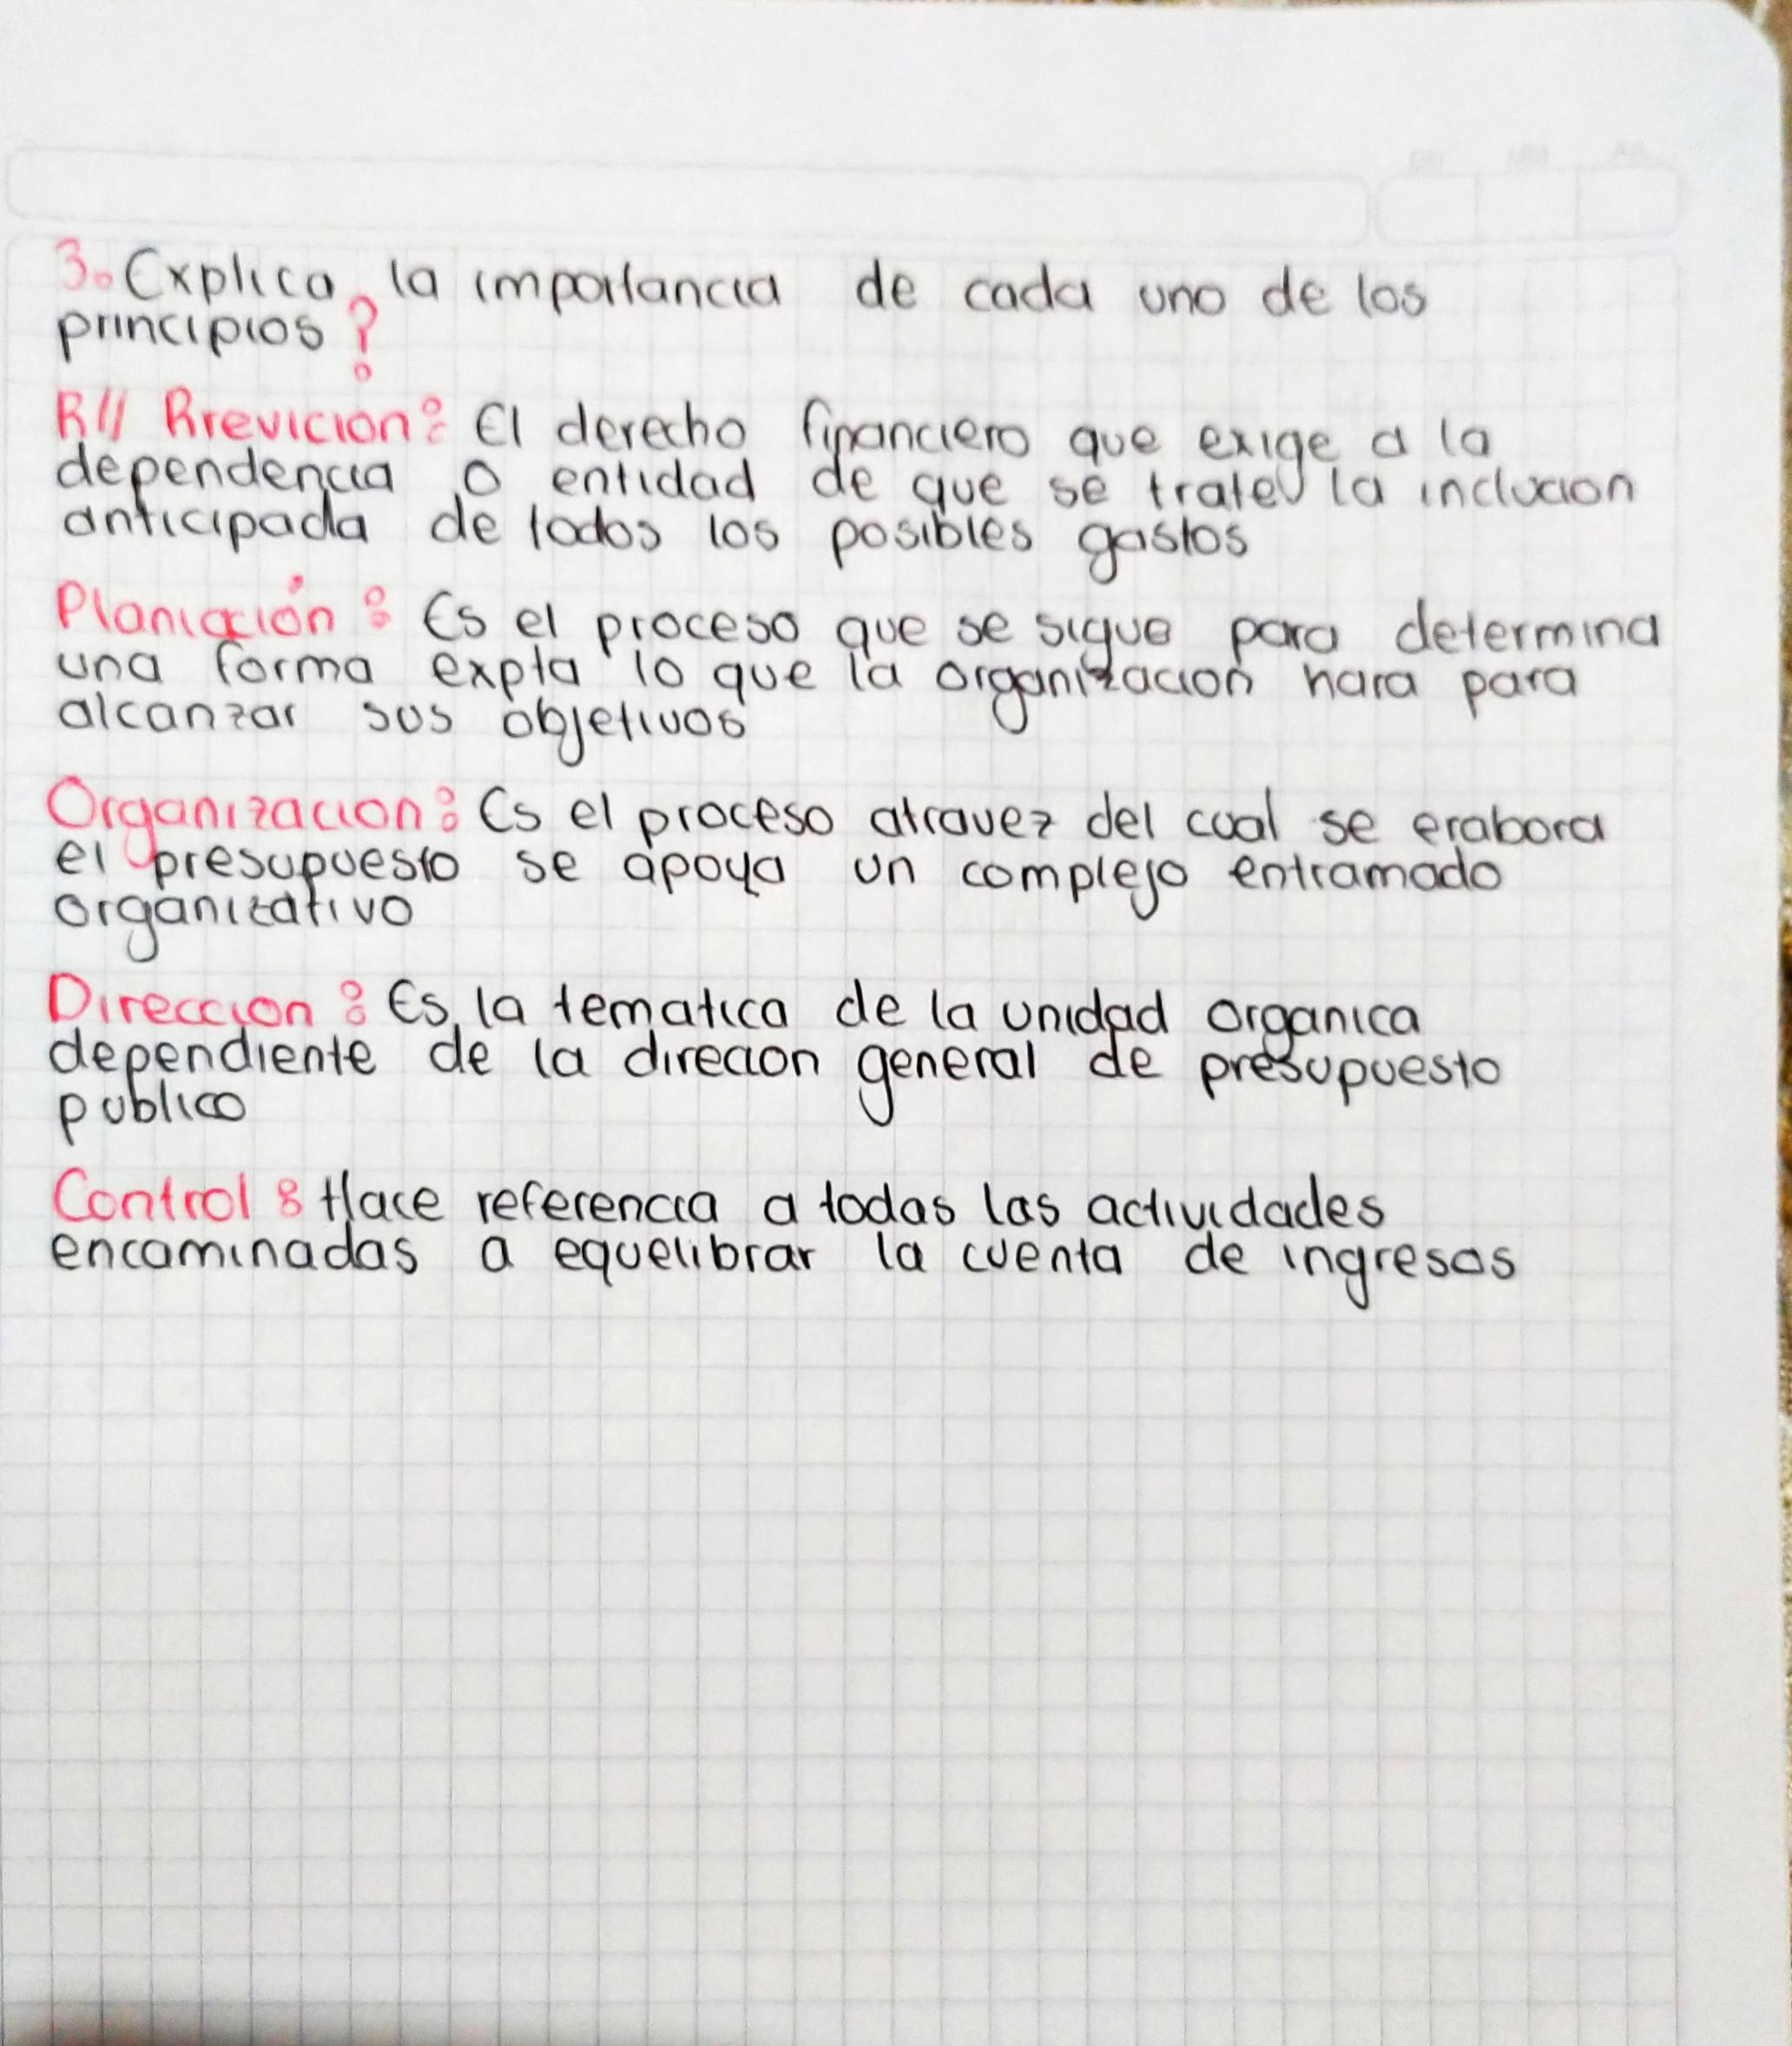 3. Explica la importancia de cada uno de los
principios?
R// Previcion: El derecho financiero que exige a la
dependencia o entidad de que se trate la inclucion
anticipada de todos los posibles gastos
Planiación: Es el proceso que se sigue para determina
una forma expta lo que la organizacion hara para
alcanzar sus objetivos
Organizacion: Es el proceso atravez del cual se erabora
el presupuesto se apoya un complejo entramado
organizativo
Direccion: Es la tematica de la unidad organica
dependiente de la direcion general de presupuesto
publico
Control: Hace referencia a todas las actividades
encaminadas a equelibrar la cuenta de ingresos